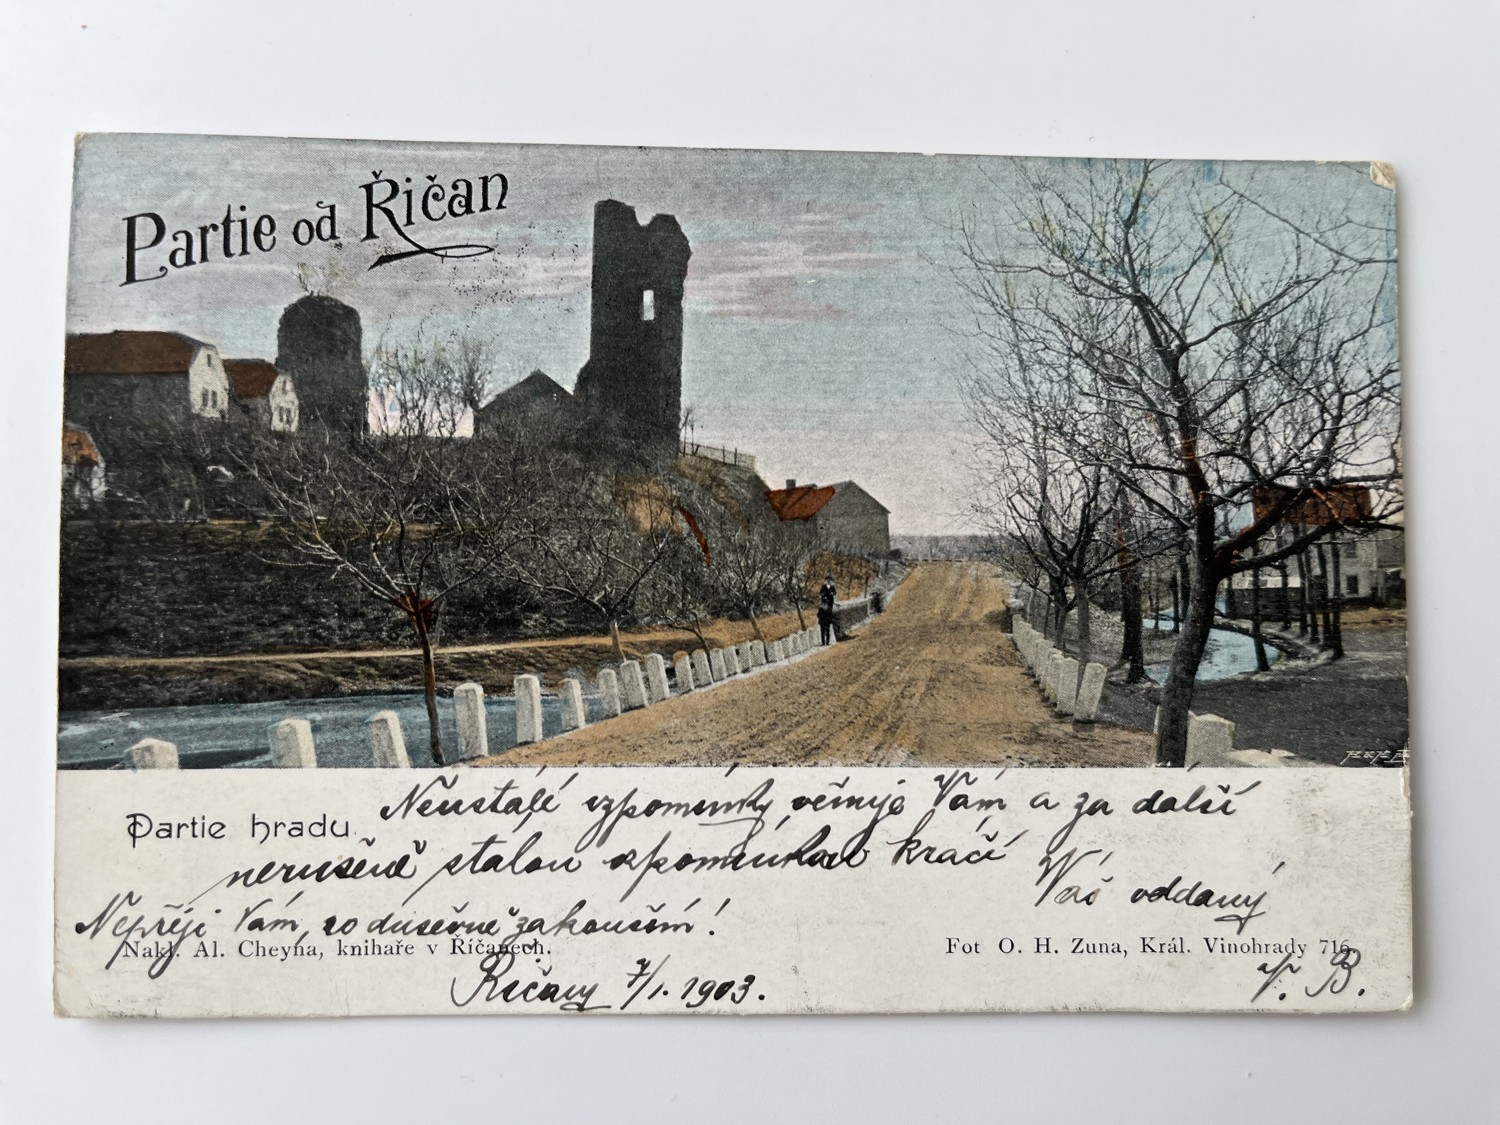 Partie od Řičan
Partie hradu.
Neustálé vzpomínky věnuje Vám a za další
nerušeně stalou vzpomínkou kráčí
Váš oddaný
Nepřeji Vám, co duševně zakouším!
Nakl. Al. Cheyňa, knihaře v Říčanech.
Fot O. H. Zuna, Král. Vinohrady 716.
Řičany 7/1. 1903.
V. B.